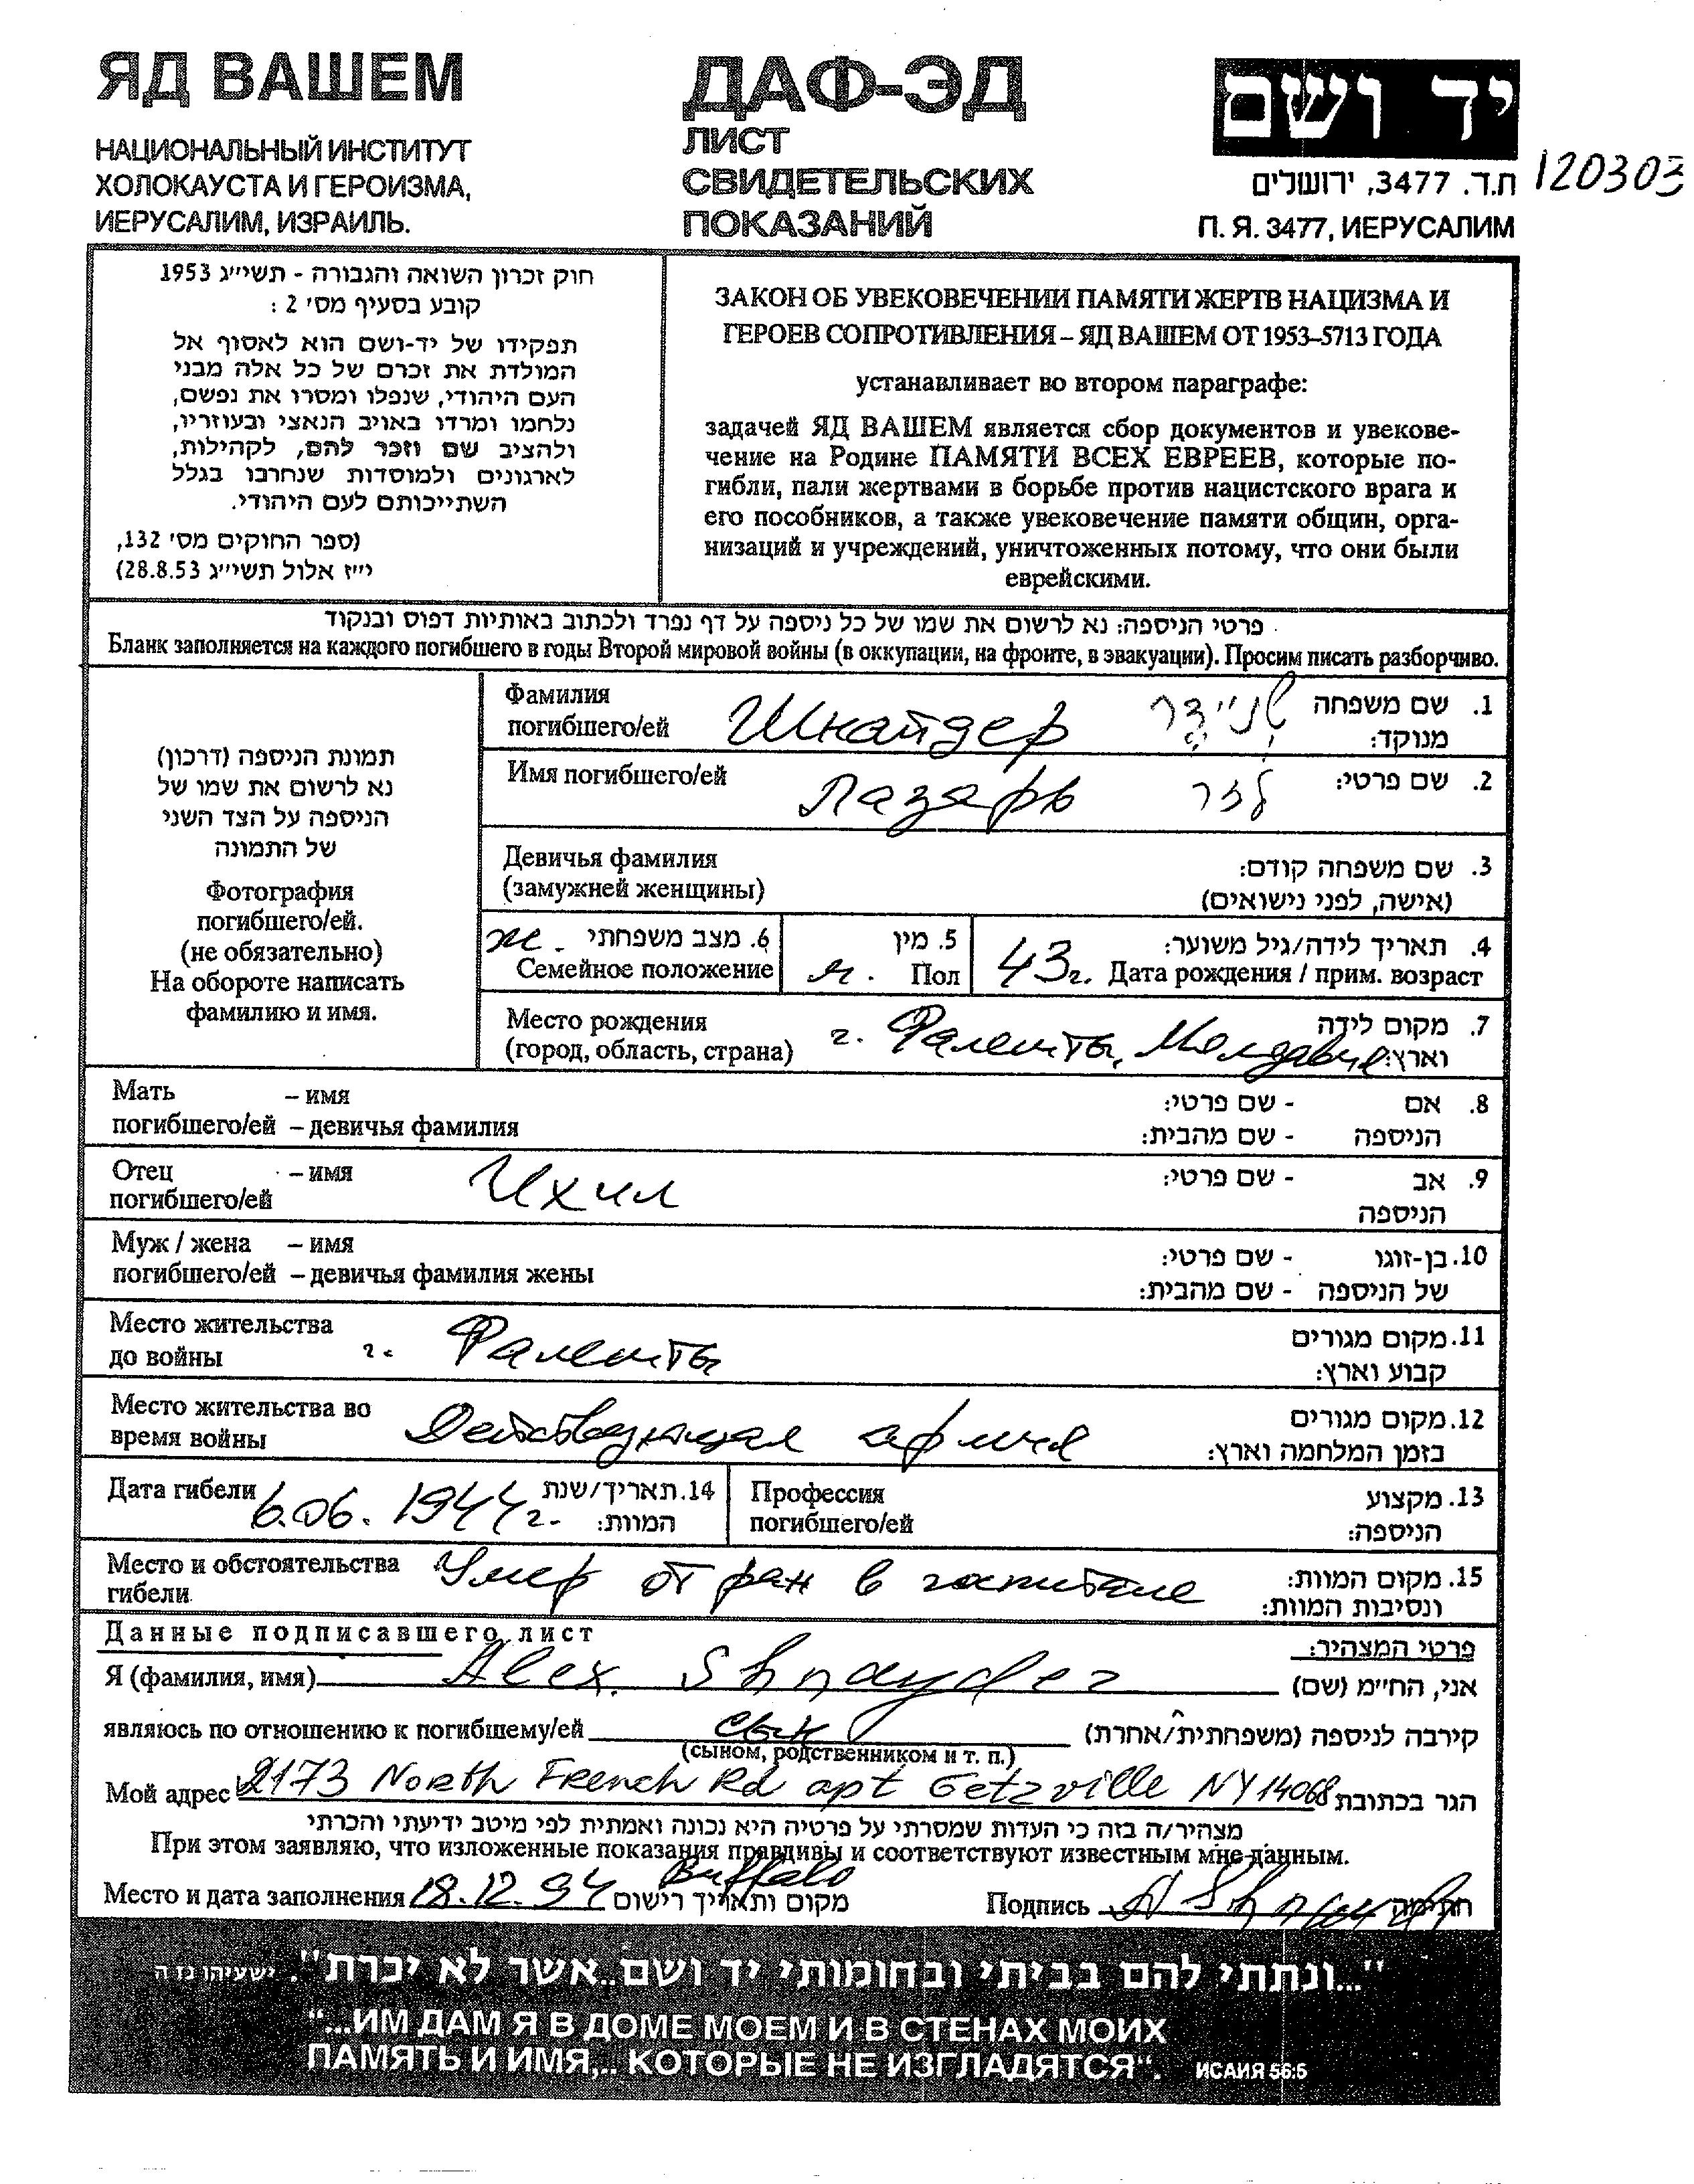 ЯД ВАШЕМ
НАЦИОНАЛЬНЫЙ ИНСТИТУТ
ХОЛОКАУСТА И ГЕРОИЗМА,
ИЕРУСАЛИМ, ИЗРАИЛЬ.
ДАФ-ЭД
ЛИСТ
СВИДЕТЕЛЬСКИХ
ПОКАЗАНИЙ
יד ושם
ת.ד. 3477, ירושלים
П. Я. 3477, ИЕРУСАЛИМ
120303
חוק זכרון השואה והגבורה - תשי״ג 1953
קובע בסעיף מס׳ 2 :
תפקידו של יד-ושם הוא לאסוף אל
המולדת את זכרם של כל אלה מבני
העם היהודי, שנפלו ומסרו את נפשם,
נלחמו ומרדו באויב הנאצי ובעוזריו,
ולהציב שם וזכר להם, לקהילות,
לארגונים ולמוסדות שנחרבו בגלל
השתייכותם לעם היהודי.
(ספר החוקים מס׳ 132,
י״ז אלול תשי״ג 28.8.53)
ЗАКОН ОБ УВЕКОВЕЧЕНИИ ПАМЯТИ ЖЕРТВ НАЦИЗМА И
ГЕРОЕВ СОПРОТИВЛЕНИЯ – ЯД ВАШЕМ ОТ 1953–5713 ГОДА
устанавливает во втором параграфе:
задачей ЯД ВАШЕМ является сбор документов и увекове-
чение на Родине ПАМЯТИ ВСЕХ ЕВРЕЕВ, которые по-
гибли, пали жертвами в борьбе против нацистского врага и
его пособников, а также увековечение памяти общин, орга-
низаций и учреждений, уничтоженных потому, что они были
еврейскими.
פרטי הניספה: נא לרשום את שמו של כל ניספה על דף נפרד ולכתוב באותיות דפוס ובנקוד
Бланк заполняется на каждого погибшего в годы Второй мировой войны (в оккупации, на фронте, в эвакуации). Просим писать разборчиво.
תמונת הניספה (דרכון)
נא לרשום את שמו של
הניספה על הצד השני
של התמונה
Фотография
погибшего/ей.
(не обязательно)
На обороте написать
фамилию и имя.
Фамилия
погибшего/ей Шнайдер שניידר
1. שם משפחה
מנוקד:
Имя погибшего/ей Лазарь לזר 2. שם פרטי:
Девичья фамилия
(замужней женщины)
3. שם משפחה קודם:
(אישה, לפני נישואים)
ж. 6. מצב משפחתי
Семейное положение
5. מין
м. Пол
4. תאריך לידה/גיל משוער:
43 г. Дата рождения / прим. возраст
Место рождения
(город, область, страна) г. Фалешты, Молдавия
7. מקום לידה
וארץ:
Мать – имя
погибшего/ей – девичья фамилия
8. אם - שם פרטי:
הניספה - שם מהבית:
Отец – имя Ихил
погибшего/ей
9. אב - שם פרטי:
הניספה
Муж / жена – имя
погибшего/ей – девичья фамилия жены
10. בן-זוגו - שם פרטי:
של הניספה - שם מהבית:
Место жительства
до войны г. Фалешты
11. מקום מגורים
קבוע וארץ:
Место жительства во
время войны Действующая армия
12. מקום מגורים
בזמן המלחמה וארץ:
Дата гибели 6.06.1944 г.
14. תאריך/שנת
המוות:
Профессия
погибшего/ей
13. מקצוע
הניספה:
Место и обстоятельства
гибели Умер от ран в госпитале
15. מקום המוות:
ונסיבות המוות:
Данные подписавшего лист
פרטי המצהיר:
Я (фамилия, имя) Alex. Shnayder אני, הח״מ (שם)
являюсь по отношению к погибшему/ей сын קירבה לניספה (משפחתית/אחרת)
(сыном, родственником и т. п.)
Мой адрес 2173 North French Rd apt Getzville NY 14068 הגר בכתובת
מצהיר/ה בזה כי העדות שמסרתי על פרטיה היא נכונה ואמתית לפי מיטב ידיעתי והכרתי
При этом заявляю, что изложенные показания правдивы и соответствуют известным мне данным.
Buffalo
Место и дата заполнения 18.12.94 מקום ותאריך רישום Подпись A Shnayder חתימה
"...ונתתי להם בביתי ובחומותי יד ושם..אשר לא יכרת". ישעיהו נו ה
“...ИМ ДАМ Я В ДОМЕ МОЕМ И В СТЕНАХ МОИХ
ПАМЯТЬ И ИМЯ,.. КОТОРЫЕ НЕ ИЗГЛАДЯТСЯ“. ИСАИЯ 56:5